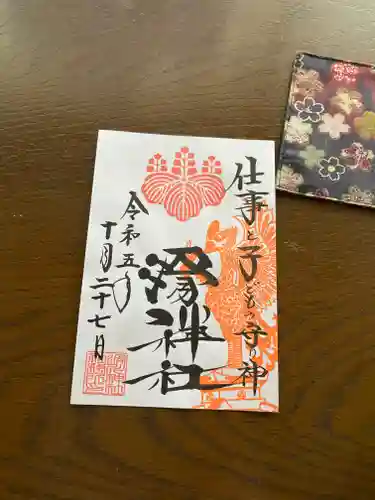 仕事と子どもの守り神
神社
令和五年
十月二十七日